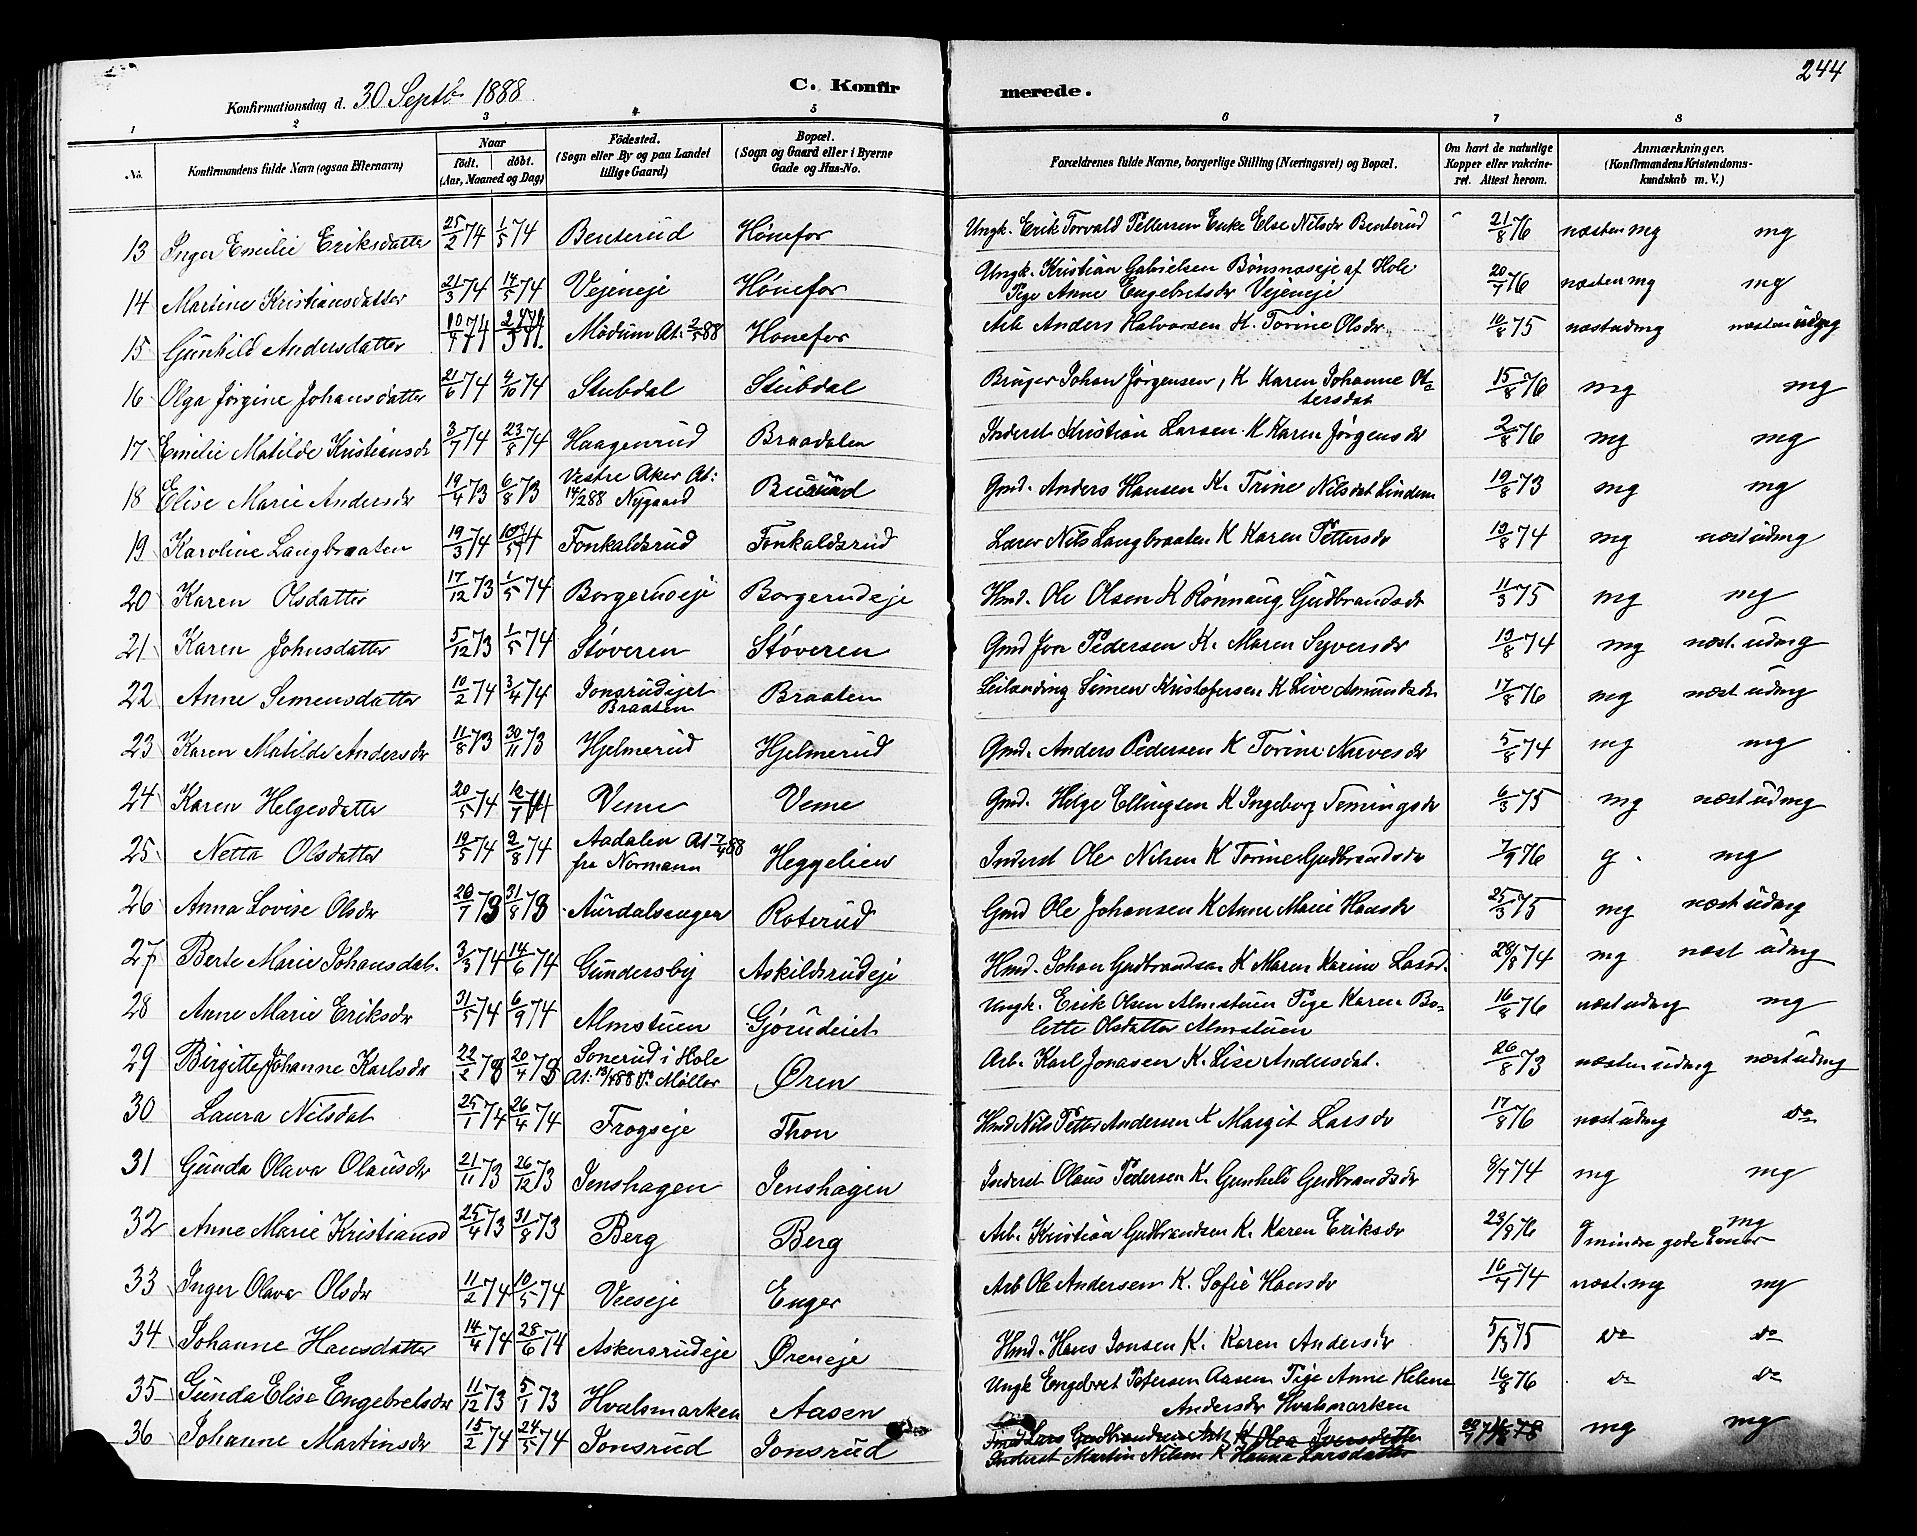 244
Konfirmationsdag d. 30 Septb. 1888. C. Konfirmerede.
1 2 3 4 5 6 7 8
No. Konfirmandens fulde Navn (ogsaa Efternavn) Naar født. døbt. (Aar, Maaned og Dag) Födested. (Sogn eller By og paa Landet tillige Gaard) Bopæl. (Sogn og Gaard eller i Byerne Gade og Hus-No. Forældrenes fulde Navne, borgerlige Stilling (Næringsvei) og Bopæl. Om havt de naturlige Kopper eller vakcineret. Attest herom. Anmærkninger. (Konfirmandens Kristendomskundskab m. V.)
13 Inger Emilie Eriksdatter 25/2 74 1/5 74 Benterud Hönefos Ungk. Erik Torvald Pettersen Enke Else Nilsdr Benterud 21/8 76 næsten mg mg
14 Martine Kristiansdatter 21/3 74 14/5 74 Vejeneje Hönefos Ungk. Kristian Gabrielsen Bönsnæseje af Hole
Pige Anne Engebretsdr Vejeneje 20/7 76 næsten mg mg
15 Gunhild Andersdatter 10/4 74 Modum At. 2/5 88 Hönefos Arb Anders Halvorsen K. Torine Olsdr 16/8 75 næst udmg næsten udmg
16 Olga Jörgine Johansdatter 21/6 74 4/10 74 Stubdal Stubdal Bruger Johan Jörgensen, K Karen Johanne Ot-
tersdat 15/8 76 mg mg
17 Emilie Matilde Kristiansdr 3/7 74 23/8 74 Haagenrud Braadalen Inderst Kristian Larsen K Karen Jörgensdr 2/8 76 mg mg
18 Elise Marie Andersdr 19/4 73 6/8 73 Vestre Aker At: 14/288 Nygaard Busund Gmd. Anders Hansen K. Trine Nilsdat Lindem 19/8 73 mg mg
19 Karoline Langbraaten 19/3 74 Fonkaldsrud Fonkaldsrud Lærer Nils Langbraaten K Karen Pettersdr 13/8 74 mg næst udmg
20 Karen Olsdatter 17/12 73 1/5 74 Borgerudeje Borgerudeje Hmd. Ole Olsen K Rönnaug Gudbrandsdr 11/3 75 mg mg
21 Karen Johnsdatter 5/12 73 1/5 74 Stöveren Stöveren Gmd Jon Pedersen K. Maren Syversdr 13/8 74 mg næst. udmg
22 Anne Simensdatter 10/2 74 3/4 74 Jonsrudejet
Braaten Braaten Leilænding Simen Kristofersen K Live Amundsdr 17/8 76 mg næst udmg
23 Karen Matilde Andersdr 11/8 73 30/11 73 Hjelmerud Hjelmerud Gmd. Anders Pedersen K Torine Narvesdr 5/8 74 mg mg
24 Karen Helgesdatter 20/5 74 12/7 74 Veme Veme Gmd. Helge Ellingsen K Ingeborg Temingsdr 6/3 75 mg næst udmg
25 Netta Olsdatter 19/5 74 9/8 74 Aadalen At 7/4 88
fra Normann Heggelien Inderst Ole Nilsen K Torine Gudbrandsdr 7/9 76 g. mg
26 Anna Lovise Olsdr 20/7 73 31/8 73 Aurdalsengen Roterud Gmd Ole Johansen K Anne Marie Hansdr 25/3 75 mg næst udmg
27 Berte Marie Johansdatr. 3/3 74 14/6 74 Gundersby Askildsrudeje Hmd. Johan Gudbrandsen K Maren Karine Larsd. 28/8 74 mg næst udmg
28 Anne Marie Eriksdr 31/5 74 6/9 74 Almstuen Gjörudeiet Ungk. Erik Olsen Almstuen Pige Karen Bo-
lette Olsdatter Almstuen 16/8 76 næst udmg mg
29 Birgitte Johanne Karlsdr 22/2 73 20/4 73 Sonerud i Hole
At: 13/4 88 Møller Øren Arb. Karl Jonasen K. Lise Andersdat. 26/8 73 næsten udmg næst udmg
30 Laura Nilsdat 25/1 74 26/4 74 Frogseje Thon Hmd Nils Petter Andersen K Margit Larsdr 17/8 76 næst udmg do
31 Gunda Olava Olausdr 21/11 73 26/12 73 Jenshagen Jenshagen Inderst Olaus Pedersen K. Gunhild Gudbrandsdr 9/7 74 mg mg
32 Anne Marie Kristiansd 25/4 73 31/8 73 Berg Berg Arb. Kristian Gudbrandsen K. Karen Eriksdr 23/9 76 g mindre gode Evner mg
33 Inger Olava Olsdr 11/2 74 10/5 74 Veeseje Enger Arb Ole Andersen K. Sofie Hansdr 16/7 74 næst. mg mg
34 Johanne Hansdatter 14/4 74 28/6 74 Askersrudeje Øreneje Hmd. Hans Jonsen K. Karen Andersdr 5/3 75 do do
35 Gunda Elise Engebretsdr 11/12 73 5/1 73 Hvalsmarken Aasen Ungk Engebret Petersen Aasen Pige Anne Helene
Andersdr Hvalsmarken 16/8 76 do do
36 Johanne Martinsdr 15/2 74 24/5 74 Jonsrud Jonsrud Lars Gudbrandsen K Olea Iversdatter
Inderst Martin Nilsen K Hanna Larsdatter mg mg